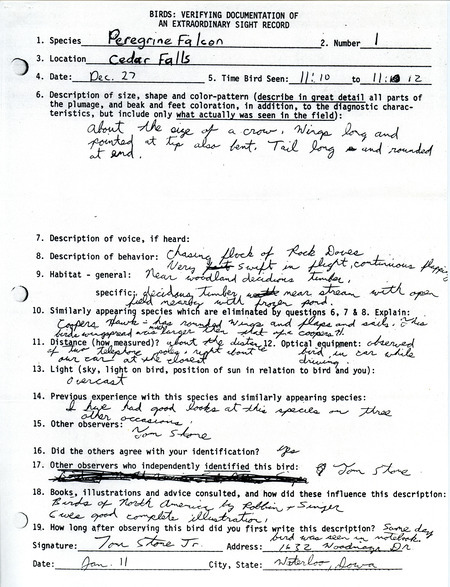 BIRDS: VERIFYING DOCUMENTATION OF
AN EXTRAORDINARY SIGHT RECORD
1. Species Peregrine Falcon 2. Number 1
3. Location Cedar Falls
4. Date: Dec. 27 5. Time Bird Seen: 11:10 to 11:12
6. Description of size, shape and color-pattern (describe in great detail all parts of
the plumage, and beak and feet coloration, in addition, to the diagnostic charac-
teristics, but include only what actually was seen in the field):
About the size of a crow. Wings long and
pointed at tip also bent. Tail long and rounded
at end.
7. Description of voice, if heard:
8. Description of behavior: Chasing flock of Rock Doves
Very swift in flight, continuous flapping
9. Habitat - general: Near woodland deciduous timber.
specific: deciduous timber near stream with open
field nearby with frozen pond.
10. Similarly appearing species which are eliminated by questions 6, 7 & 8. Explain:
Coopers Hawk - has rounded wings and flaps and sails. This
birds wingspread was larger
11. Distance (how measured)? about the distance 12. Optical equipment: observed
of two telephone poles, right about bird in car while
our car at the closest driving.
13. Light (sky, light on bird, position of sun in relation to bird and you):
overcast
14. Previous experience with this species and similarly appearing species:
I have had good looks at this species on three
other occasions.
15. Other observers: Tom Stone
16. Did the others agree with your identification? yes
17. Other observers who independently identified this bird: Tom Stone
18. Books, illustrations and advice consulted, and how did these influence this description:
Birds of North America by Robbin + Singer
was good complete illustration!
19. How long after observing this bird did you first write this description? Same day
bird was seen in notebook.
Signature: Tom Stone Jr. Address: 1632 Woodmayr Dr
Date: Jan. 11 City, State: Waterloo, Iowa